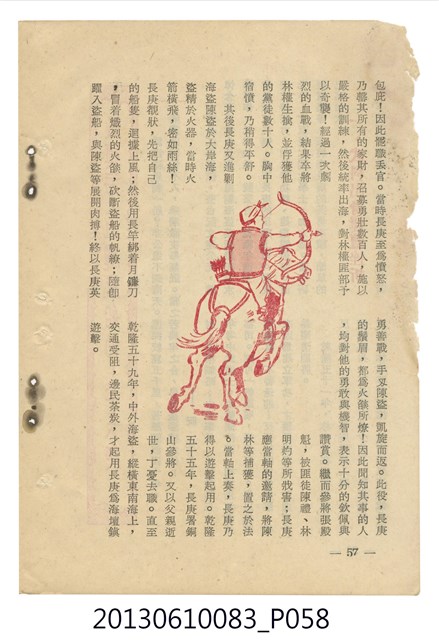 包庇！因此罷職丟官。當時長庚至為憤怒，
乃罄其所有的家財，召募勇壯數百人，施以
嚴格的訓練，然後統率出海，對林權匪部予
以奇襲！經過一次劇
烈的血戰，結果卒將
林權生擒，並俘獲他
的黨徒數十人。胸中
宿憤，乃稍得平舒。
其後長庚又進剿
海盜陳盜於大擔海，
盜精於火器，當時火
箭橫飛，密如雨絲！
長庚觀狀，先把自己
的船隻，迴據上風；然後用長竿綁着月鐮刀
，冒着熾烈的火燄，砍斷盜船的帆繚；隨即
躍入盜船，與陳盜等展開肉搏！終以長庚英
勇善戰，手刃陳盜，凱旋而返。此役，長庚
的鬚眉，都為火燄所燎！因此聞知其事的人
，均對他的勇敢與機智，表示十分的欽佩與
讚賞。繼而參將張殿
魁，被匪徒陳禮、林
明灼等所戕害；長庚
應當軸的邀請，將陳
林等捕獲，置之於法
。當軸上奏，長庚乃
得以遊擊起用。乾隆
五十五年，長庚署銅
山參將。又以父親逝
世，丁憂去職。直至
乾隆五十九年，中外海盜，縱橫東南海上，
交通受阻，邊民荼炭，才起用長庚為海壇鎮
遊擊。
— 57 —
20130610083_P058